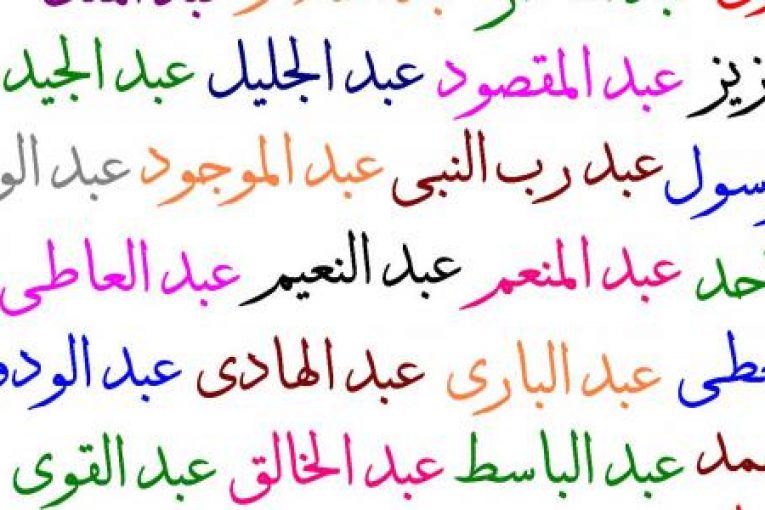 زيز عبد المقصود عبد الجليل عبد المجيد
رسول عبد رب النبى عبد الموجود عبد الو
احد عبد المنعم عبد النعيم عبد العاطى
عطى عبد البارى عبد الهادى عبد الودو
حمد عبد الباسط عبد الخالق عبد القوى